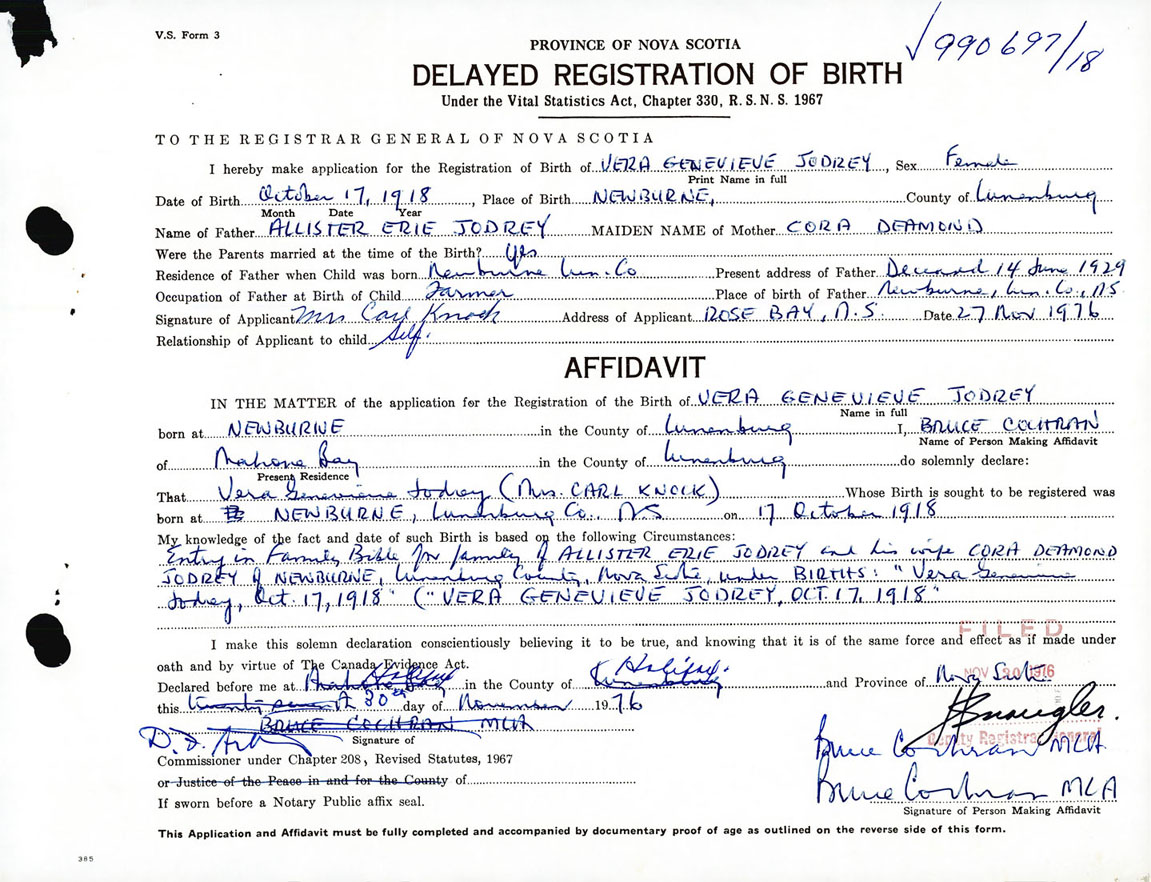 V.S. Form 3
√990697/18
PROVINCE OF NOVA SCOTIA
DELAYED REGISTRATION OF BIRTH
Under the Vital Statistics Act, Chapter 330, R.S.N.S. 1967
TO THE REGISTRAR GENERAL OF NOVA SCOTIA
I hereby make application for the Registration of Birth of VERA GENEVIEVE JODREY, Sex Female
Print Name in full
Date of Birth October 17, 1918, Place of Birth NEWBURNE, County of Lunenburg
Month Date Year
Name of Father ALLISTER ERIE JODREY MAIDEN NAME of Mother CORA DEAMOND
Were the Parents married at the time of the Birth? Yes
Residence of Father when Child was born Newburne Lun. Co Present address of Father Deceased 14 June 1929
Occupation of Father at Birth of Child Farmer Place of birth of Father Newburne, Lun. Co., N.S.
Signature of Applicant Mrs Carl Knock Address of Applicant ROSE BAY, N.S. Date 27 Nov 1976
Relationship of Applicant to child Self.
AFFIDAVIT
IN THE MATTER of the application for the Registration of the Birth of VERA GENEVIEVE JODREY
Name in full
born at NEWBURNE in the County of Lunenburg I, BRUCE COCHRAN
Name of Person Making Affidavit
of Mahone Bay in the County of Lunenburg do solemnly declare:
Present Residence
That Vera Genevieve Jodrey (Mrs. CARL KNOCK) Whose Birth is sought to be registered was
born at NEWBURNE, Lunenburg Co., NS on 17 October 1918
My knowledge of the fact and date of such Birth is based on the following Circumstances:
Entry in Family Bible for family of ALLISTER ERIE JODREY and his wife CORA DEAMOND
JODREY of NEWBURNE, Lunenburg County, Nova Scotia, under BIRTHS: "Vera Genevieve
Jodrey, Oct. 17, 1918" ("VERA GENEVIEVE JODREY, OCT. 17, 1918"
FILED
I make this solemn declaration conscientiously believing it to be true, and knowing that it is of the same force and effect as if made under
oath and by virtue of The Canada Evidence Act.
NOV 30 1976
Declared before me at Mahone Bay Halifax in the County of Lunenburg Halifax. and Province of Nova Scotia.
this twenty seventh 30th day of November 1976
BRUCE COCHRAN MLA
Signature of
Deputy Registrar General
Bruce Cochran MLA
Commissioner under Chapter 208, Revised Statutes, 1967
or Justice of the Peace in and for the County of
Bruce Cochran MLA
If sworn before a Notary Public affix seal.
Signature of Person Making Affidavit
This Application and Affidavit must be fully completed and accompanied by documentary proof of age as outlined on the reverse side of this form.
385